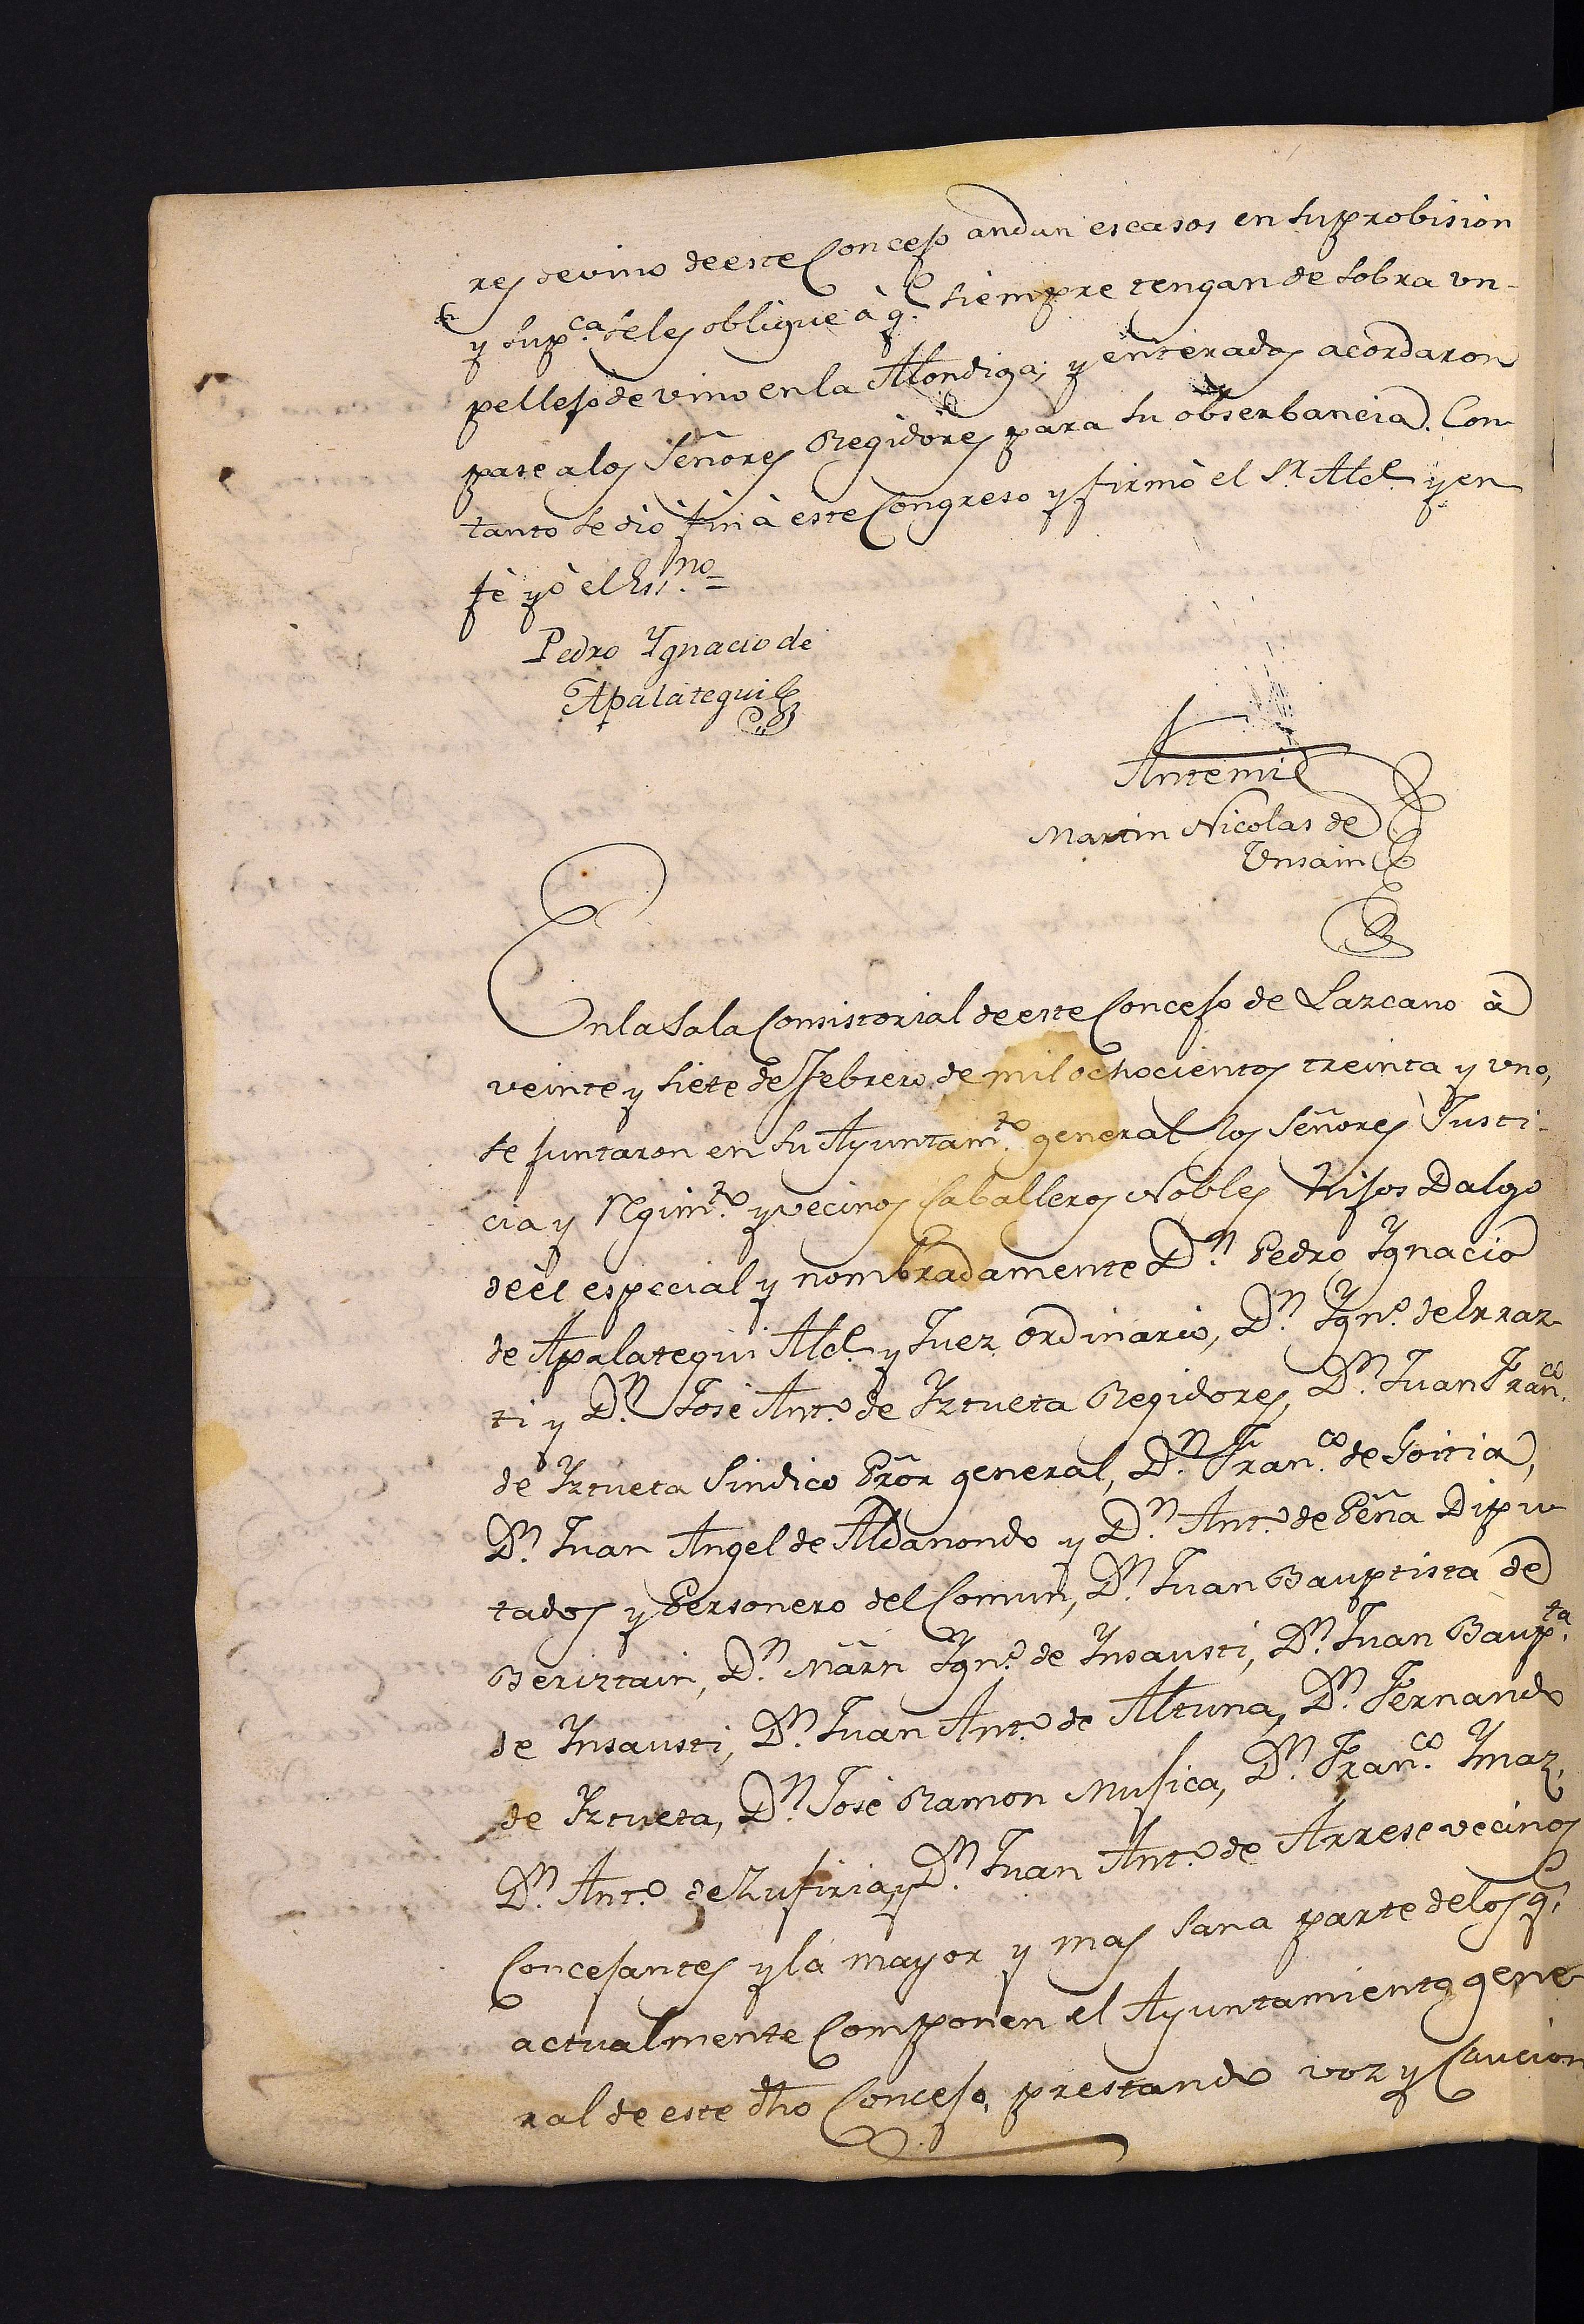 res de vino de este Concejo andan escasos en su probision
y sup.ca se les obligue à q.e siempre tengan de sobra un
pellejo de vino en la Alondiga; y enterados acordaron
pase a los Señores Regidores para su obserbancia. Con
tanto se diò fin à este Congreso y firmò el S.r Alc.e y en
fè yò el Ess.no =
Pedro Ygnacio de
Apalategui
Ante mi
Martin Nicolas de
Unsain
En la Sala Consistorial de este Concejo de Lazcano à
veinte y siete de Febrero de mil ochocientos treinta y uno,
se juntaron en su Ayuntam.to general los Señores Justi-
cia y Rgim.to y vecinos Caballeros Nobles Hijos Dalgo
de èl especial y nombradamente D.n Pedro Ygnacio
de Apalategui Alc.e y Juez ordinario, D.n Ygn.o de Irraz
ti y D.n Josè Ant.o de Yztueta Regidores, D.n Juan Fran.co
de Yztueta Sindico Prõr general, D.n Fran.co de Goitia,
D.n Juan Angel de Aldanondo y D.n Ant.o de Peña Dipu
tados y Personero del Comun, D.n Juan Bauptista de
Beriztain, D.n Mãrn Ygn.o de Ynsausti, D.n Juan Baup.ta
de Ynsausti, D.n Juan Ant.o de Altuna, D.n Fernando
de Yztueta, D.n Josè Ramon Mujica, D.n Fran.co Ymaz,
D.n Ant.o de Zufiria, y D.n Juan Ant.o de Arrese vecinos
Concejantes y la mayor y mas sana parte de los q.e
actualmente Componen el Ayuntamiento gene
ral de este dho Concejo, prestando voz y Caucion